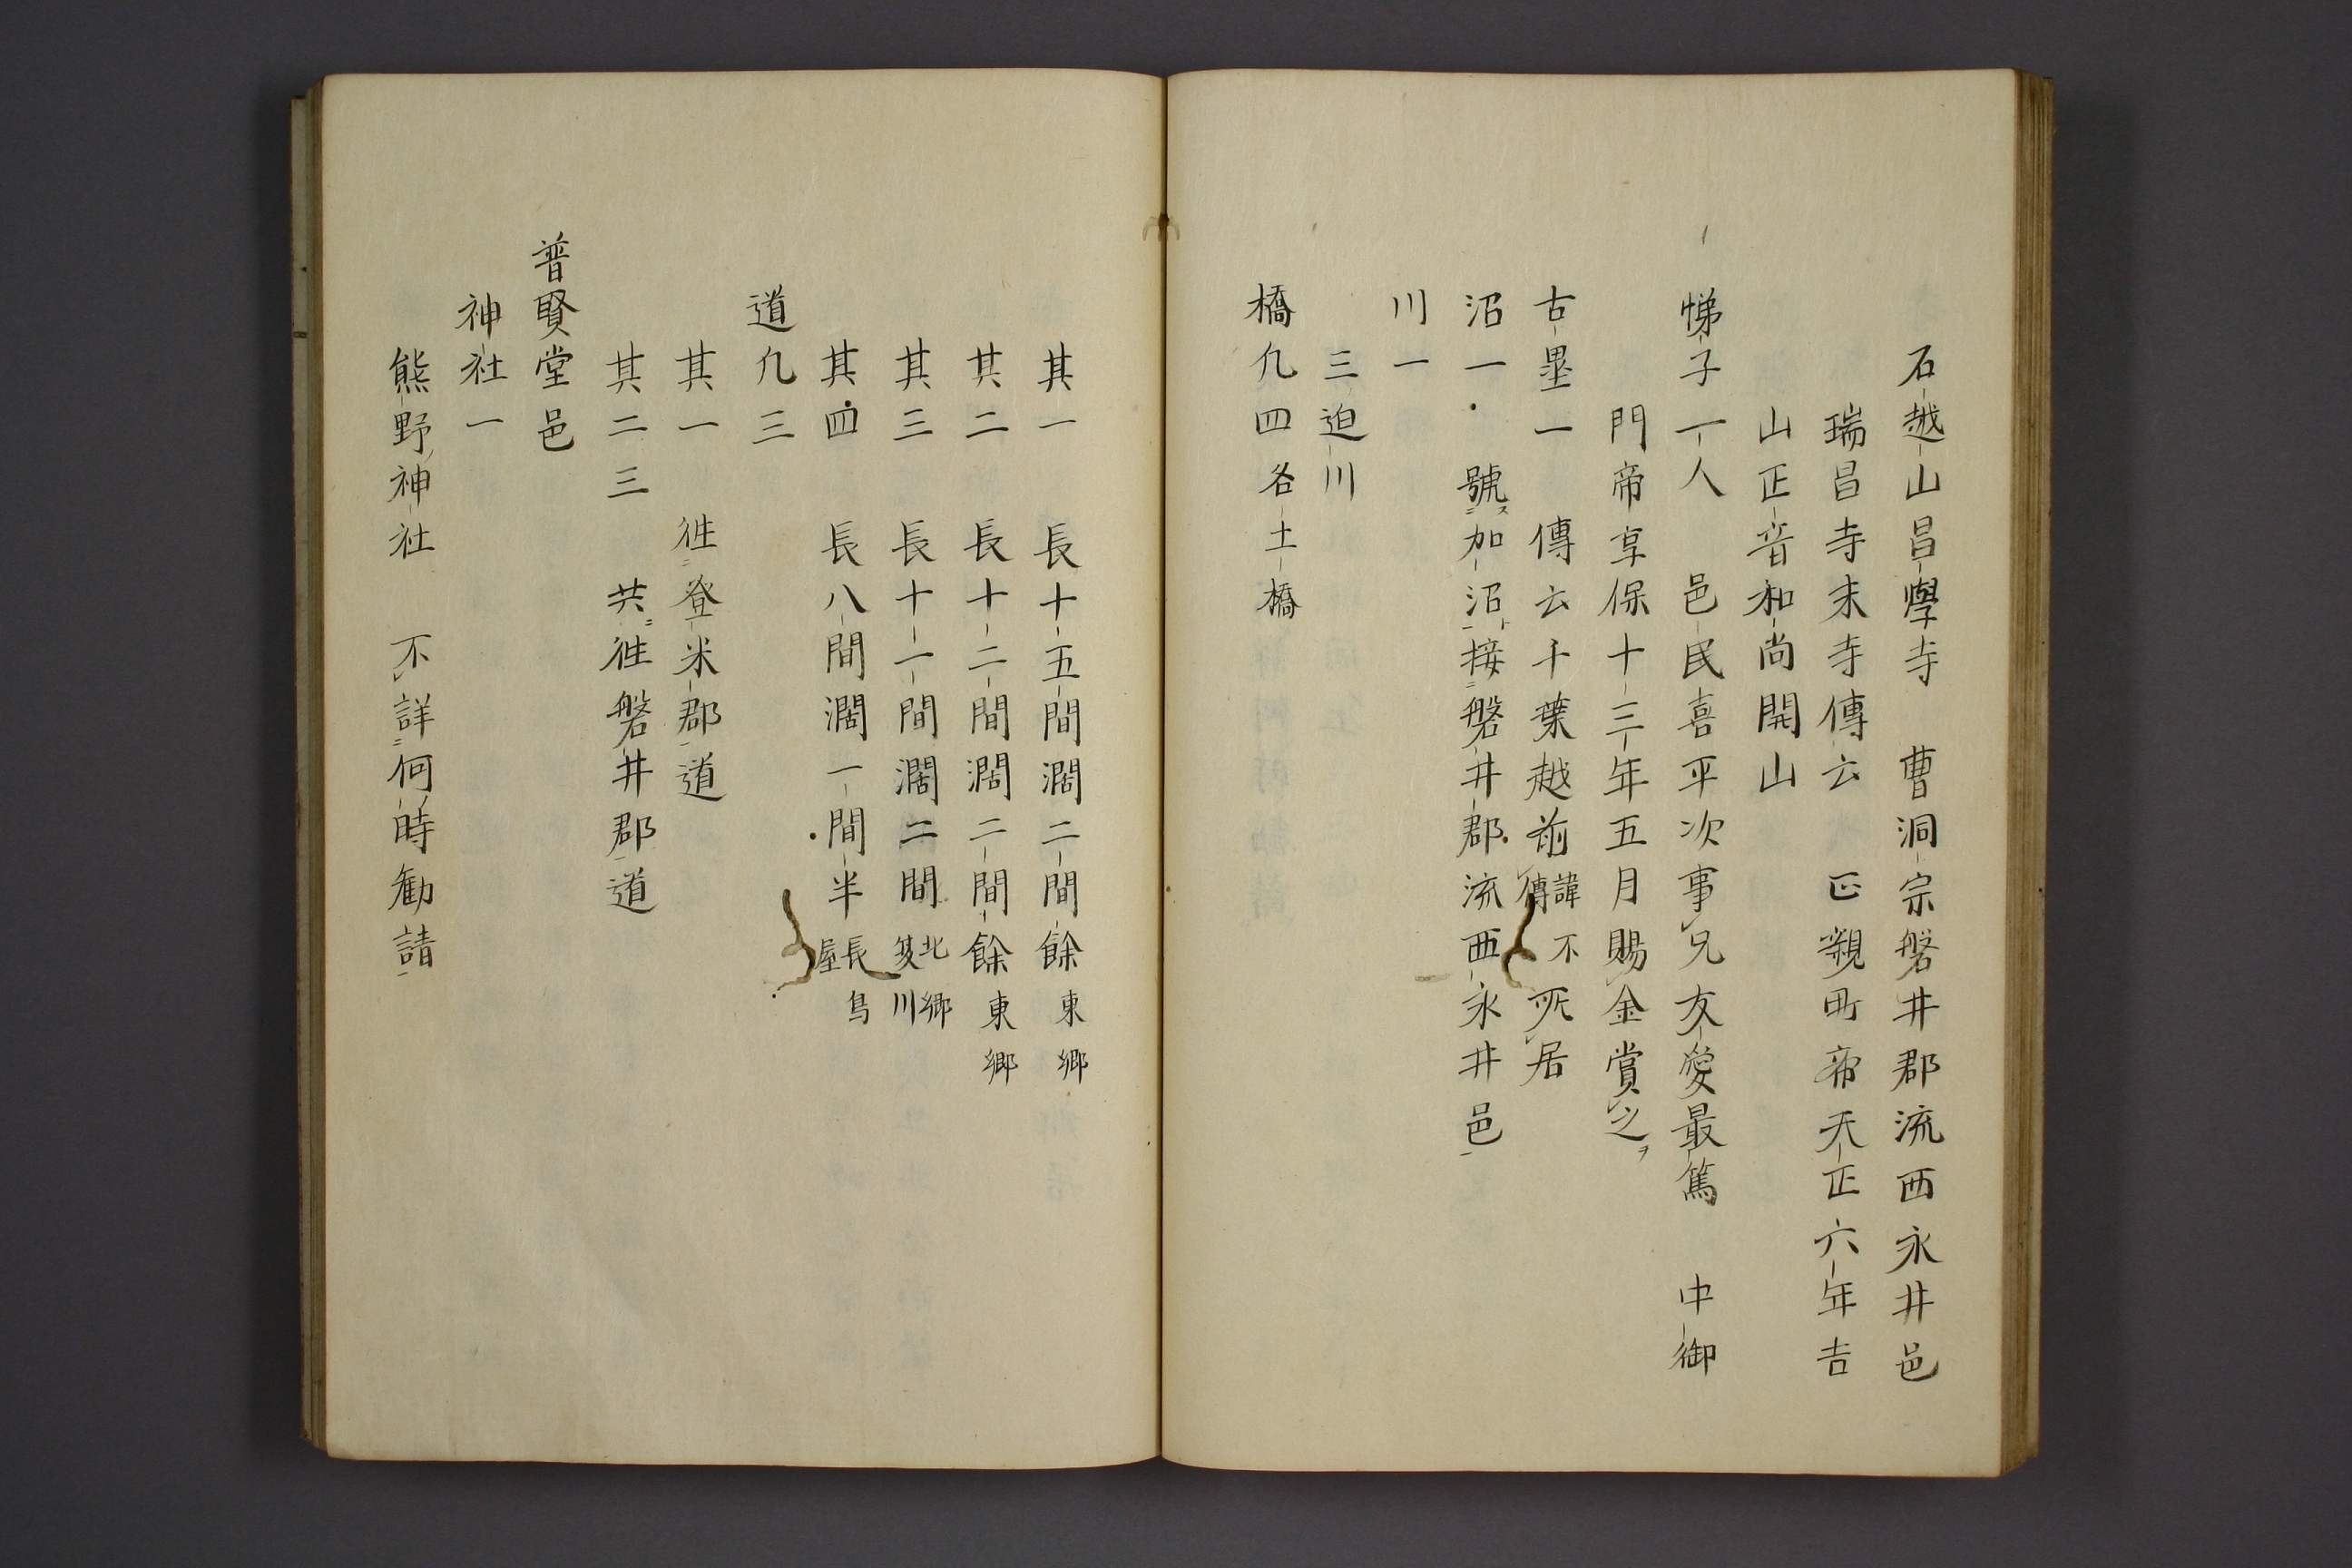 石越山昌學寺　曹洞宗磐井郡流西永井邑
瑞昌寺末寺傳云　正親町帝天正六年吉
山正音和尚開山
悌子一人　邑民喜平次事兄友愛最篤　中御
門帝享保十三年五月賜金賞之ヲ
古壘一　傳云千葉越前諱不傳所居
沼一　號ス加沼ト接磐井郡流西永井邑
川一
三迫川
橋凢四各土橋
其一　長十五間濶二間餘東郷
其二　長十二間濶二間餘東郷
其三　長十一間濶二間北郷芟川
其四　長八間濶一間半長鳥屋
道凢三
其一　徃登米郡道
其二三　共徃磐井郡道
普賢堂邑
神社一
熊野神社　不詳何時勧請